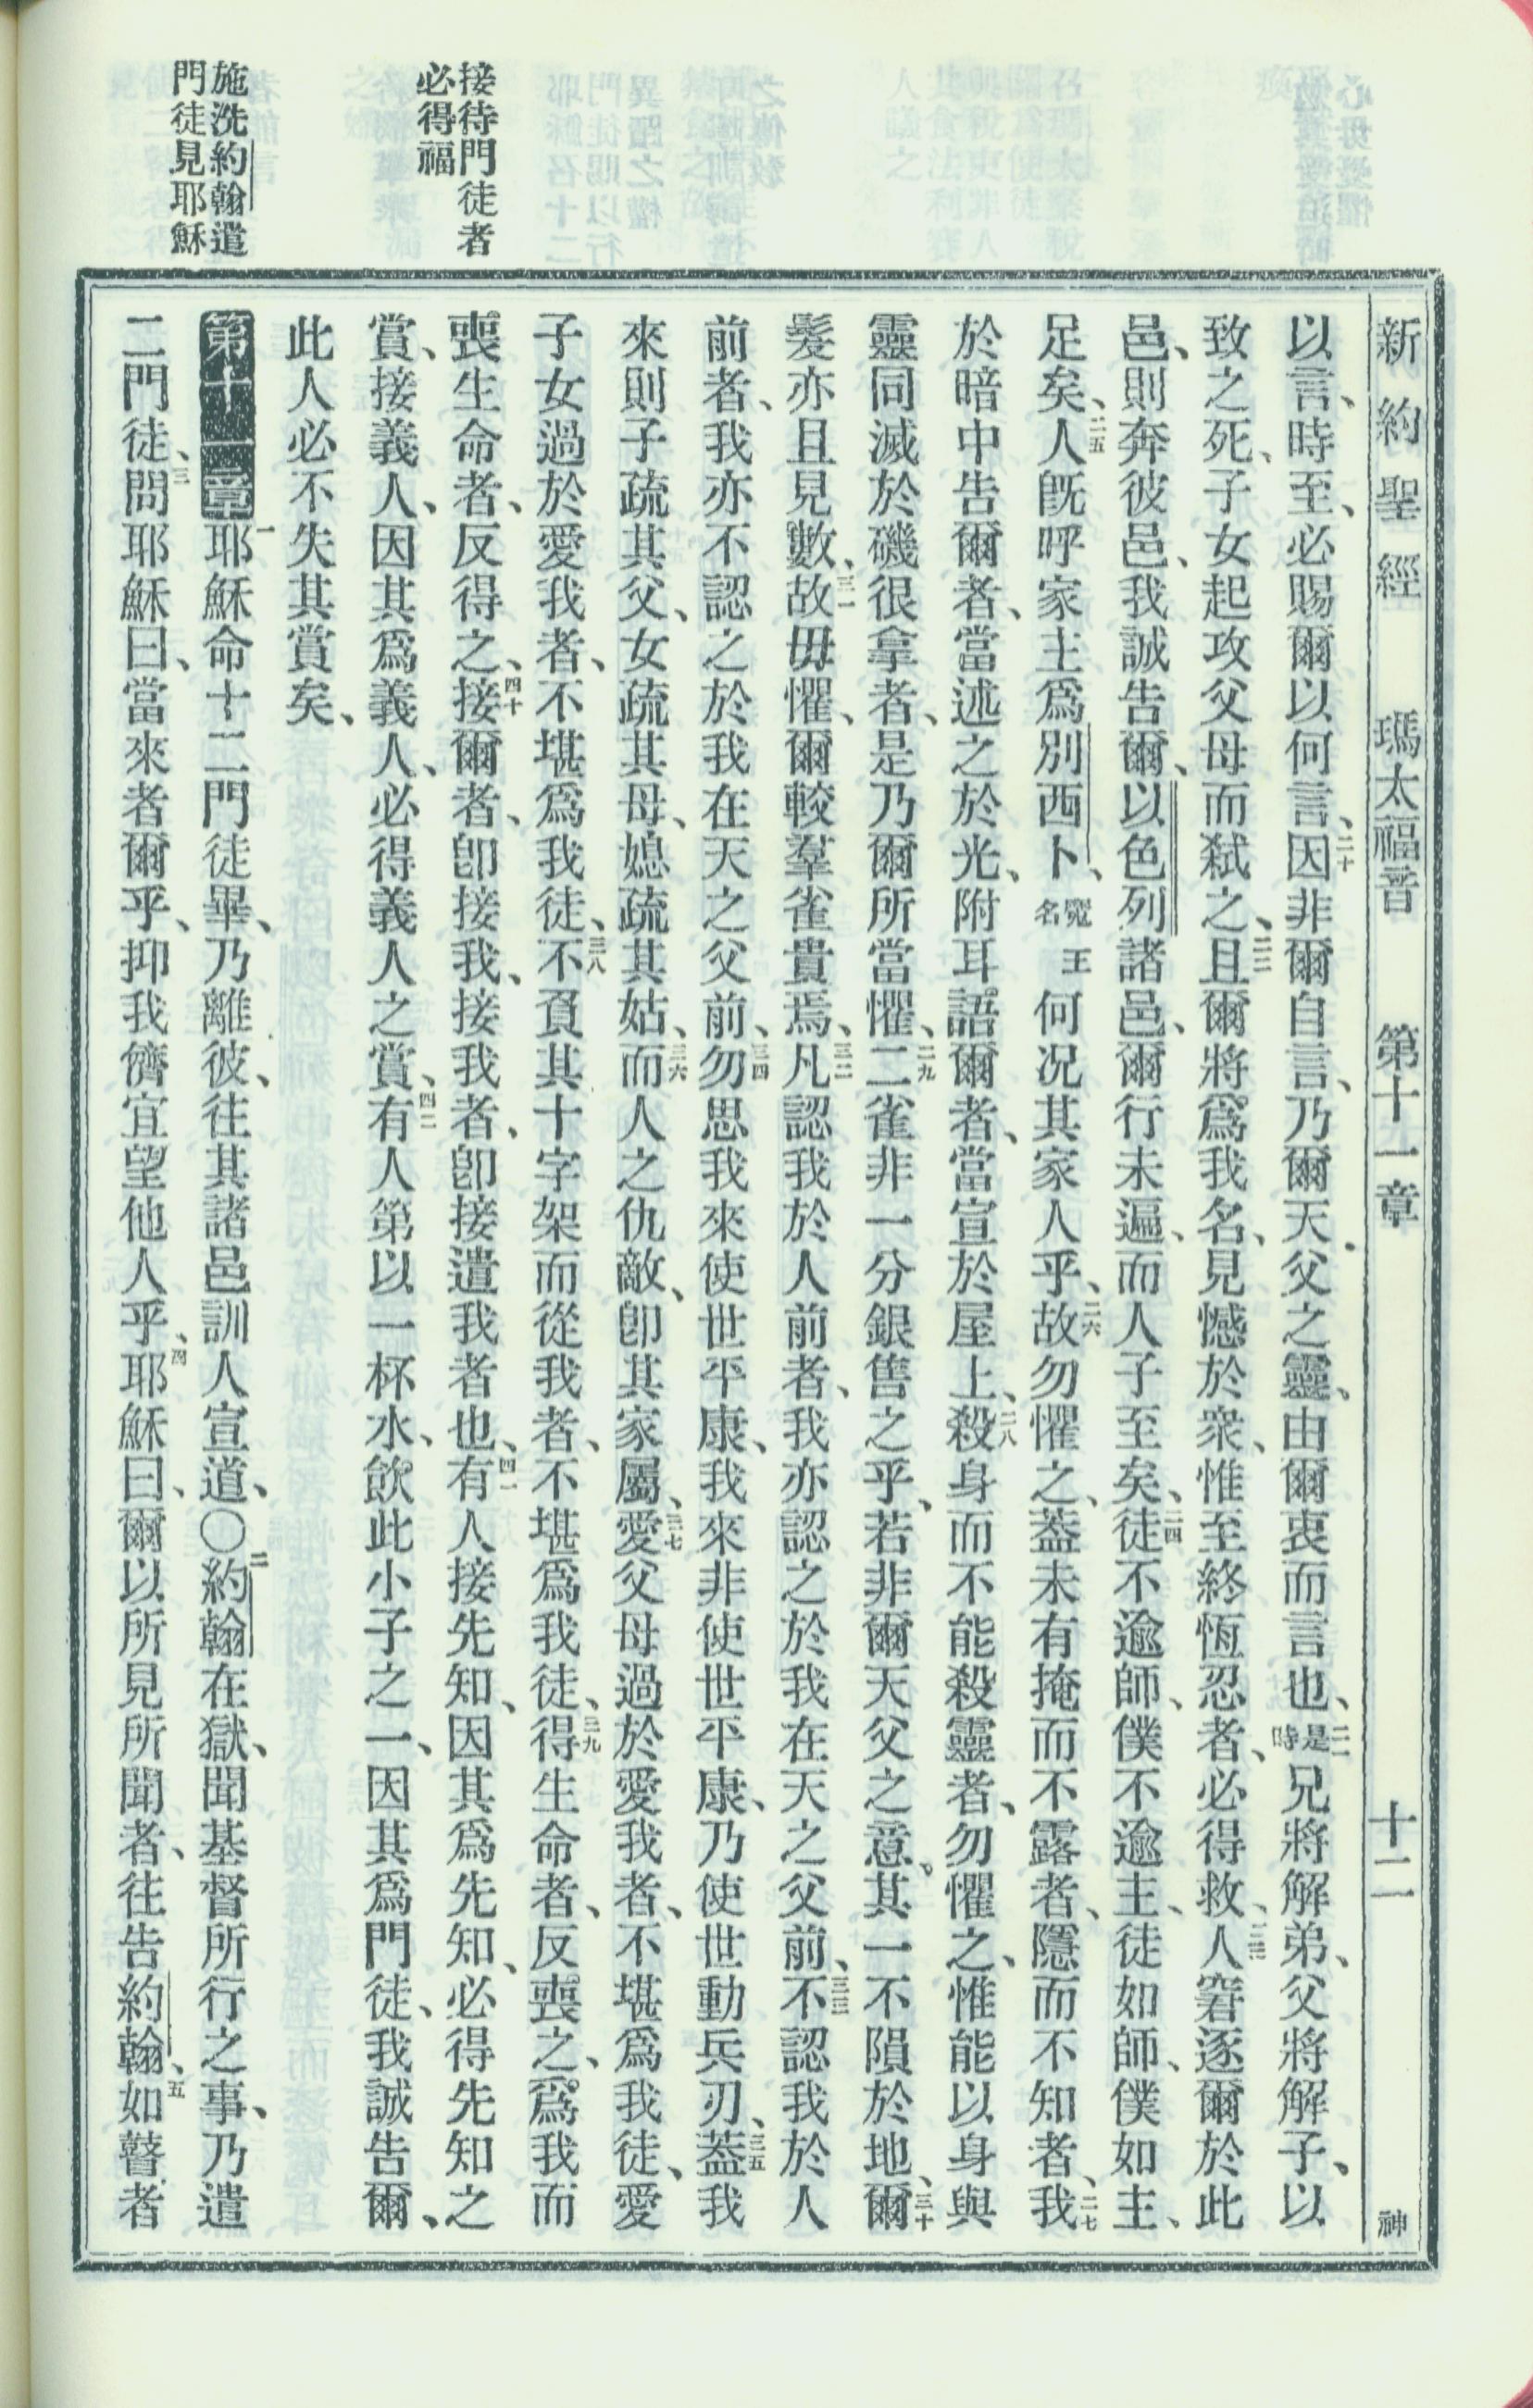 新約聖經　瑪太福音　第十一章　十二　神
以言、時至、必賜爾以何言、二十因非爾自言、乃爾天父之靈、由爾衷而言也、二一是時兄將解弟、父將解子、以
致之死、子女起攻父母而弑之、二二且爾將爲我名、見憾於衆、惟至終恆忍者、必得救、二三人窘逐爾於此
邑、則奔彼邑、我誠告爾、以色列諸邑、爾行未遍、而人子至矣、二四徒不逾師、僕不逾主、徒如師、僕如主、
足矣、二五人旣呼家主爲別西卜、鬼王名何況其家人乎、二六故勿懼之、蓋未有掩而不露者、隱而不知者、二七我
於暗中告爾者、當述之於光、附耳語爾者、當宣於屋上、二八殺身而不能殺靈者、勿懼之、惟能以身與
靈同滅於磯很拿者、是乃爾所當懼、二九二雀非一分銀售之乎、若非爾天父之意、其一不隕於地、三十爾
髮亦且見數、三一故毋懼、爾較羣雀貴焉、三二凡認我於人前者、我亦認之於我在天之父前、三三不認我於人
前者、我亦不認之於我在天之父前、三四勿思我來使世平康、我來非使世平康、乃使世動兵刃、三五蓋我
來則子疏其父、女疏其母、媳疏其姑、三六而人之仇敵、卽其家屬、三七愛父母過於愛我者、不堪爲我徒、愛
子女過於愛我者、不堪爲我徒、三八不負其十字架而從我者、不堪爲我徒、三九得生命者、反喪之、爲我而
喪生命者、反得之、四十接爾者、卽接我、接我者、卽接遣我者也、四一有人接先知、因其爲先知、必得先知之
賞、接義人、因其爲義人、必得義人之賞、四二有人第以一杯水、飲此小子之一、因其爲門徒、我誠告爾、
此人必不失其賞矣、
第十一章一耶穌命十二門徒畢、乃離彼、往其諸邑訓人宣道、〇二約翰在獄、聞基督所行之事、乃遣
二門徒、三問耶穌曰、當來者爾乎、抑我儕宜望他人乎、四耶穌曰、爾以所見所聞者、往告約翰、五如瞽者
接待門徒者
必得福
施洗約翰遣
門徒見耶穌